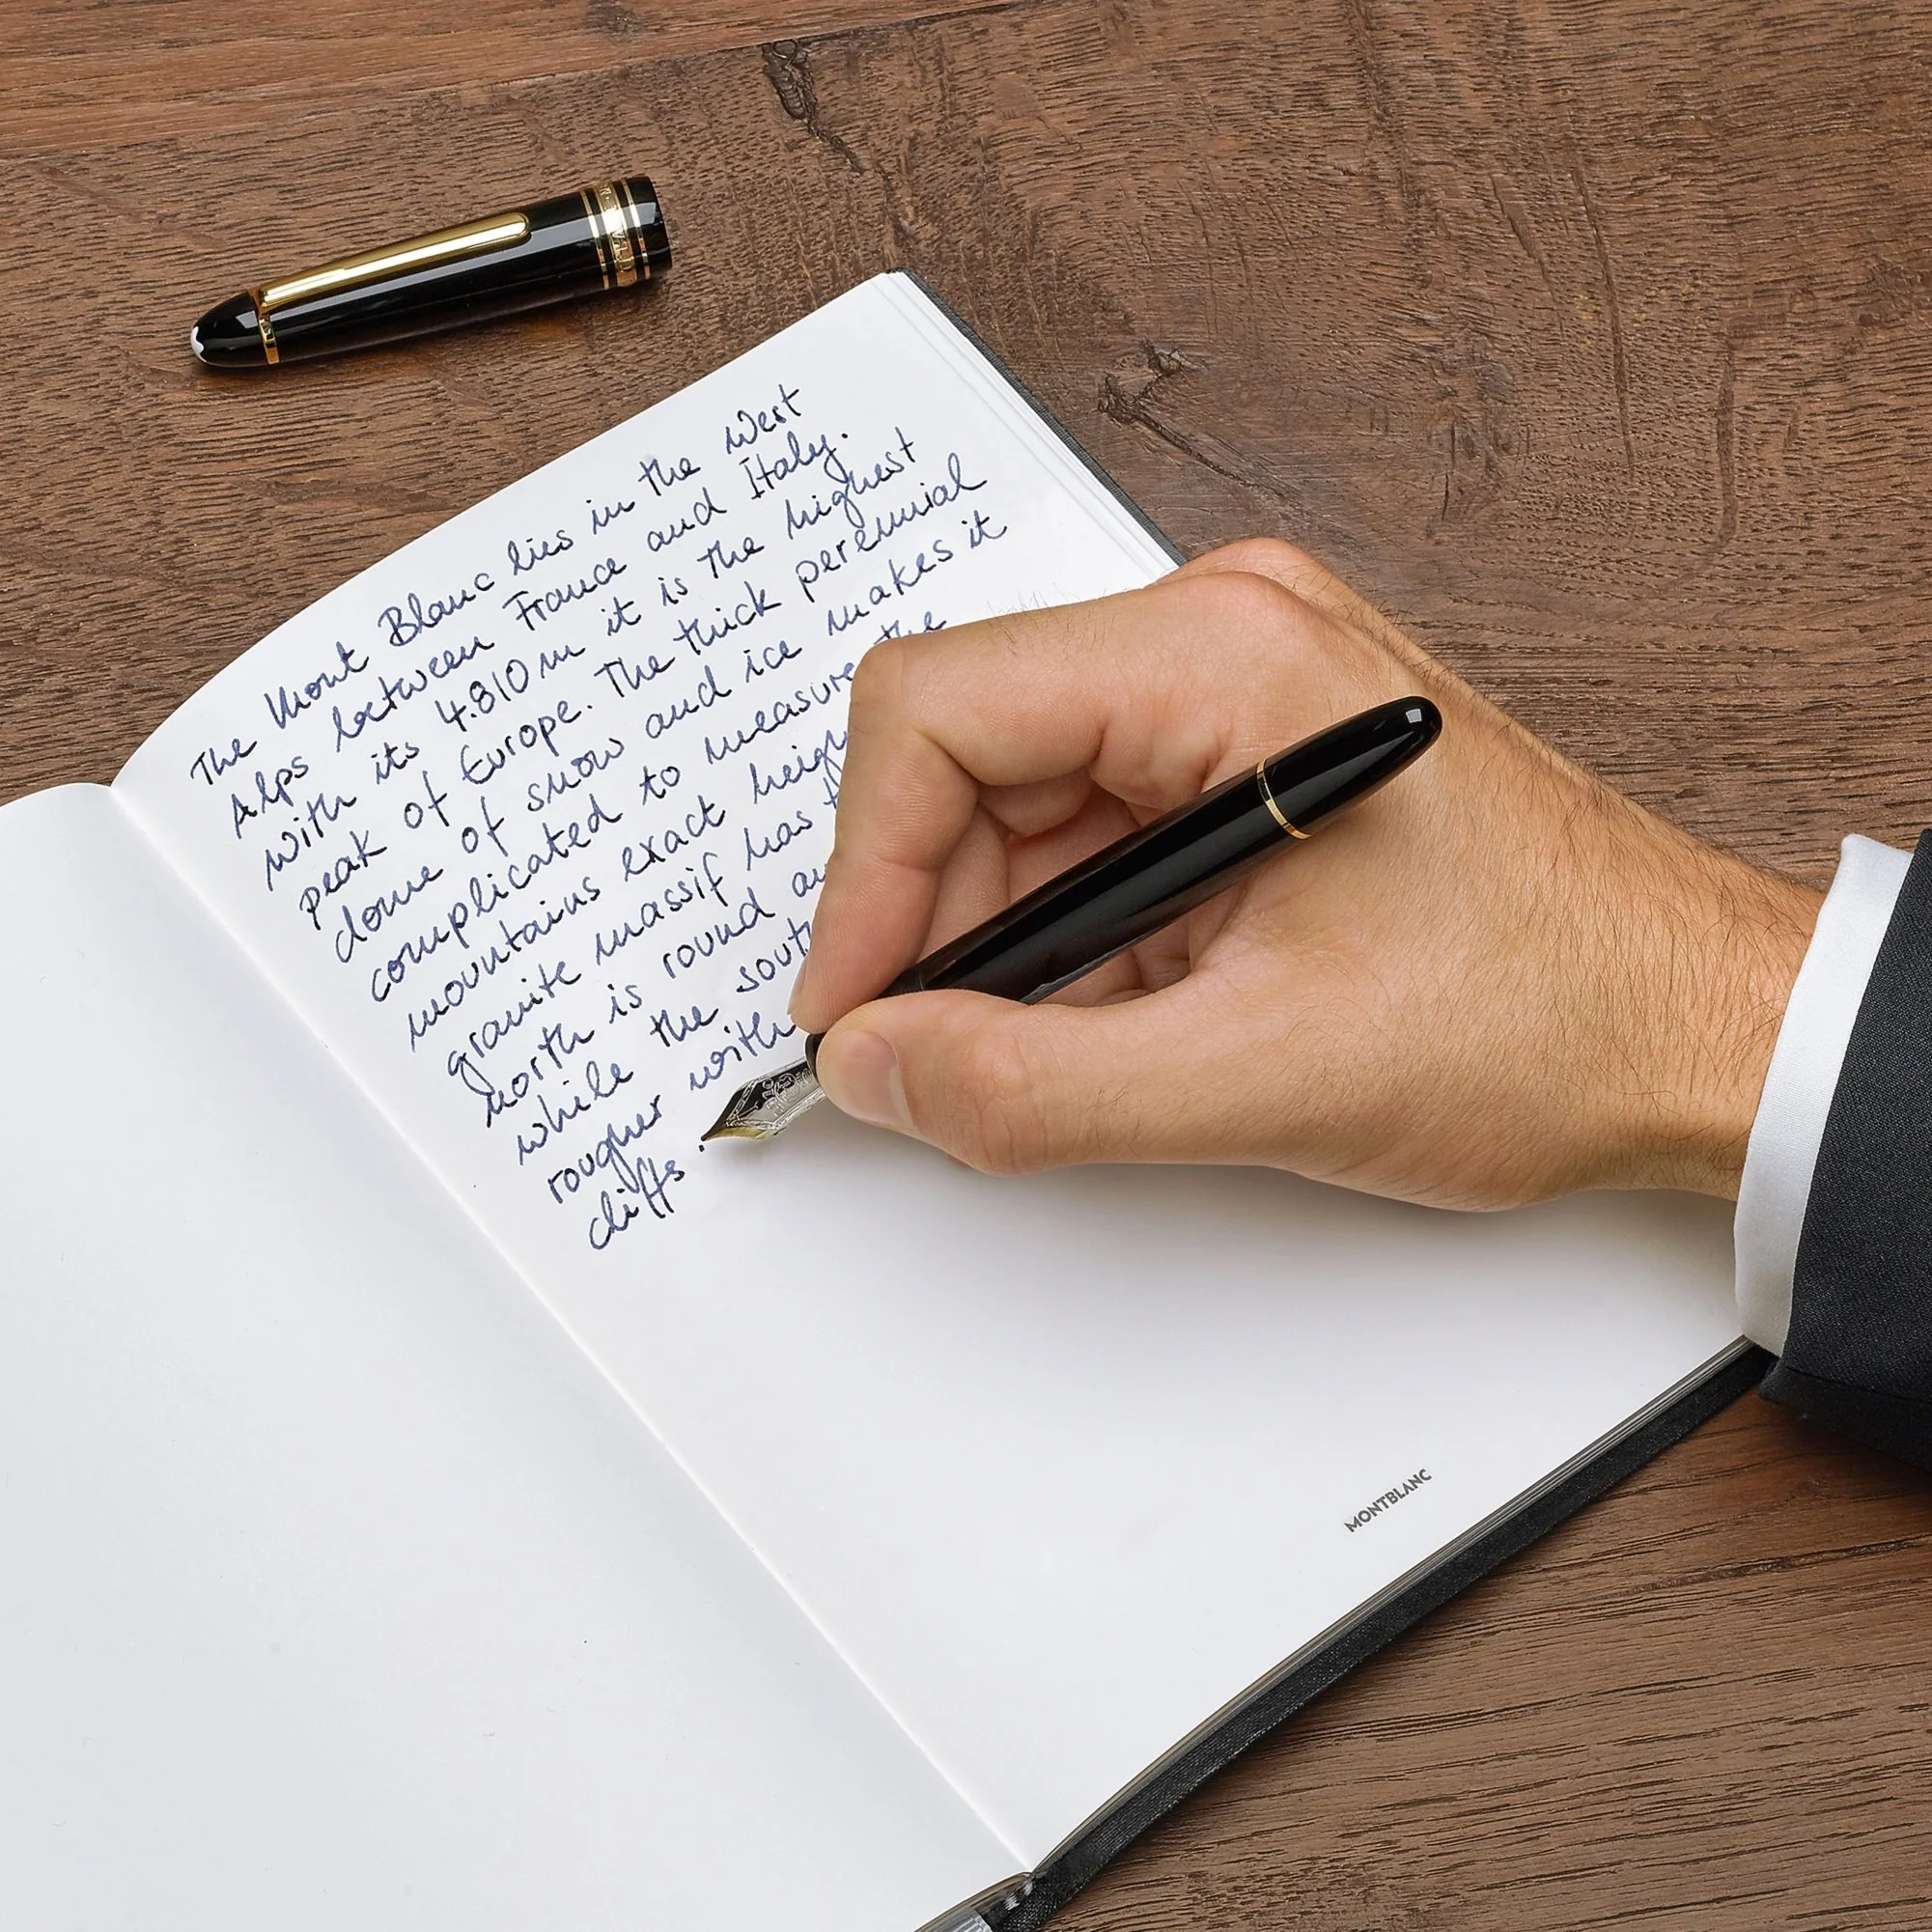 The Mont Blanc lies in the West
Alps between France and Italy.
With its 4.810 m it is the highest
peak of Europe. The thick perennial
dome of snow and ice makes it
complicated to measure the
mountains exact heig
granite massif has
north is round
while the south
rougher with
cliffs.
MONTBLANC